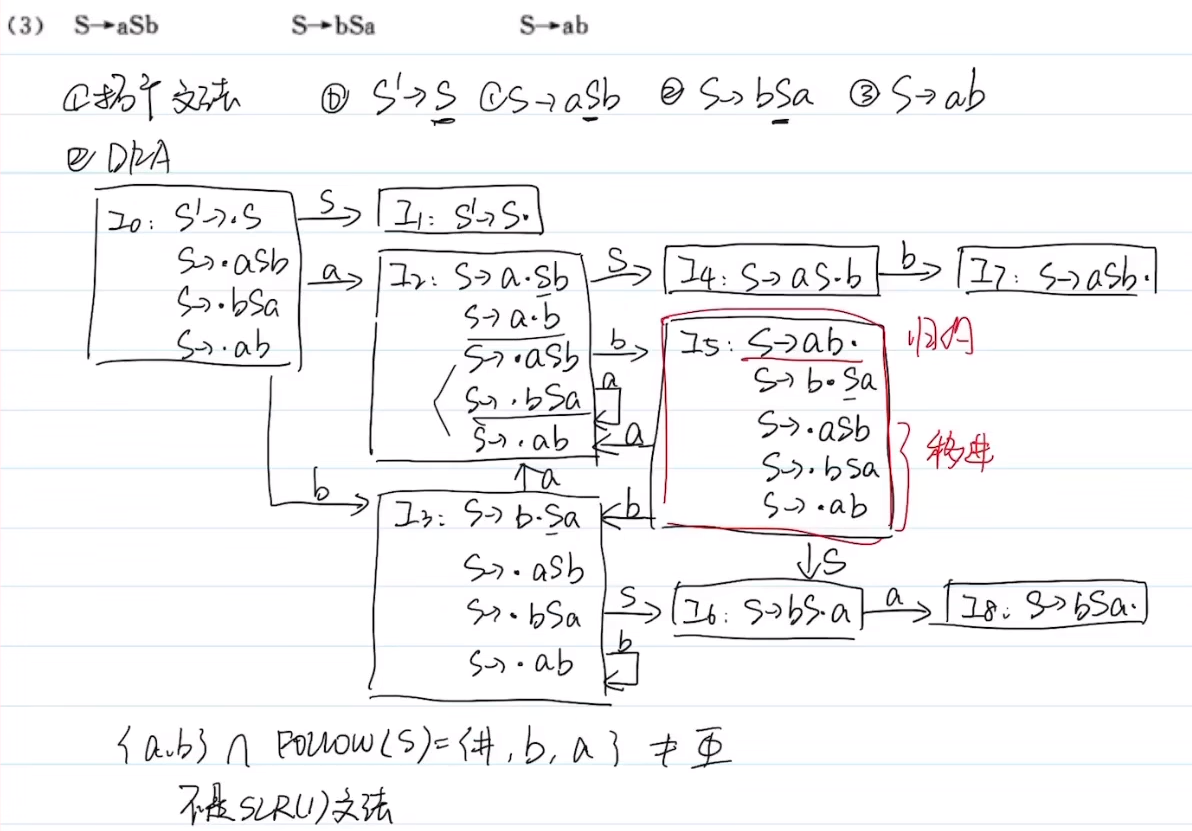 (3) S→aSb S→bSa S→ab
①拓广文法 ⓪ S'→S ①S→aSb ② S→bSa ③ S→ab
② DFA
I0: S'→·S
S→·aSb
S→·bSa
S→·ab
S
I1: S'→S·
a
I2: S→a·Sb
S→a·b
S→·aSb
S→·bSa
S→·ab
S
I4: S→aS·b
b
I7: S→aSb·
b
a
a
I5: S→ab·
S→b·Sa
S→·aSb
S→·bSa
S→·ab
归约
移进
b
a
b
I3: S→b·Sa
S→·aSb
S→·bSa
S→·ab
S
b
S
I6: S→bS·a
a
I8: S→bSa·
{a,b} ∩ FOLLOW(S)={#,b,a} ≠ Φ
不是SLR(1)文法